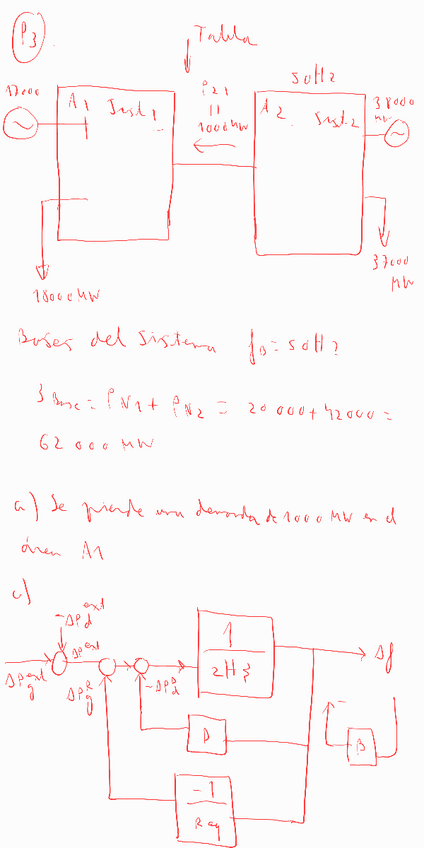 P3.
Tabla
50Hz
17000
A1
Sist1
P21
=
1000MW
A2
Sist2
38000
MW
18000MW
37000
MW
Bases del Sistema fB = 50Hz
SBase = PN1 + PN2 = 20000+42000 =
62000 MW
a) Se pierde una demanda de 1000 MW en el
área A1
c)
-ΔPd ext
ΔPg ext
ΔP ext
ΔPg R
-ΔPd R
1
2HS
Δf
D
-1
Req
-
B